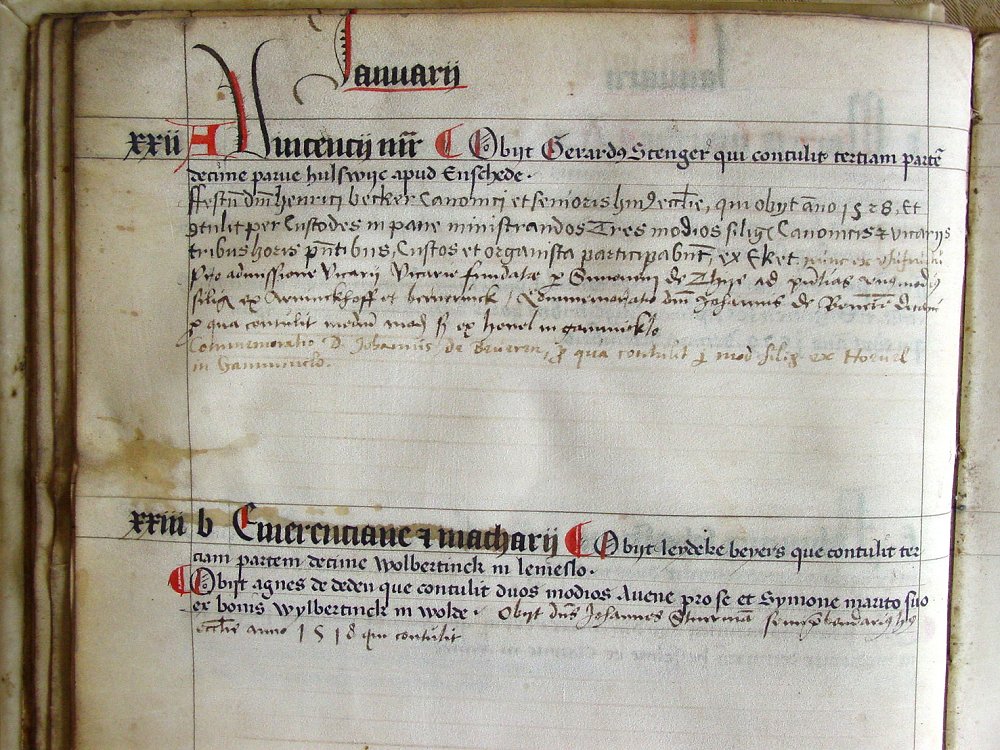 Januarij
xxii A Vincencij mr̄ Obijt Gerardꝰ Stenger qui contulit terciam partē
decime parve hulswijc apud Enschede.
Festū dn̄i henrici becker Canonici et senioris hui9 ecclie, qui obijt año 1528, Et
9tulit per Custodes in pane ministrandos Tres modios silig Canonicis et vicarijs
tribus horis pn̄tibus, Custos et organista participabūt, ex Eket
Pro admissione Vicarij Vicarie fundate p Simonem de ad
silig ex et / Commemoratio dn̄i Johannis de
p qua contulit mediū mod ex hovel in gammicklo
Commemoratio D. Johannis de p qua contulit mod silig ex Hovel
in Gammicklo.
xxiii b Emerenciane et macharij Obijt lerdeke beyers que contulit ter
ciam partem decime Wolbertinck in lemeslo.
Obijt agnes de deden que contulit duos modios Avene pro se et Symone marito suo
ex bonis Wylbertinck in wolde. Obijt dn̄s Johannes
ecclie anno 1518 qui contulit